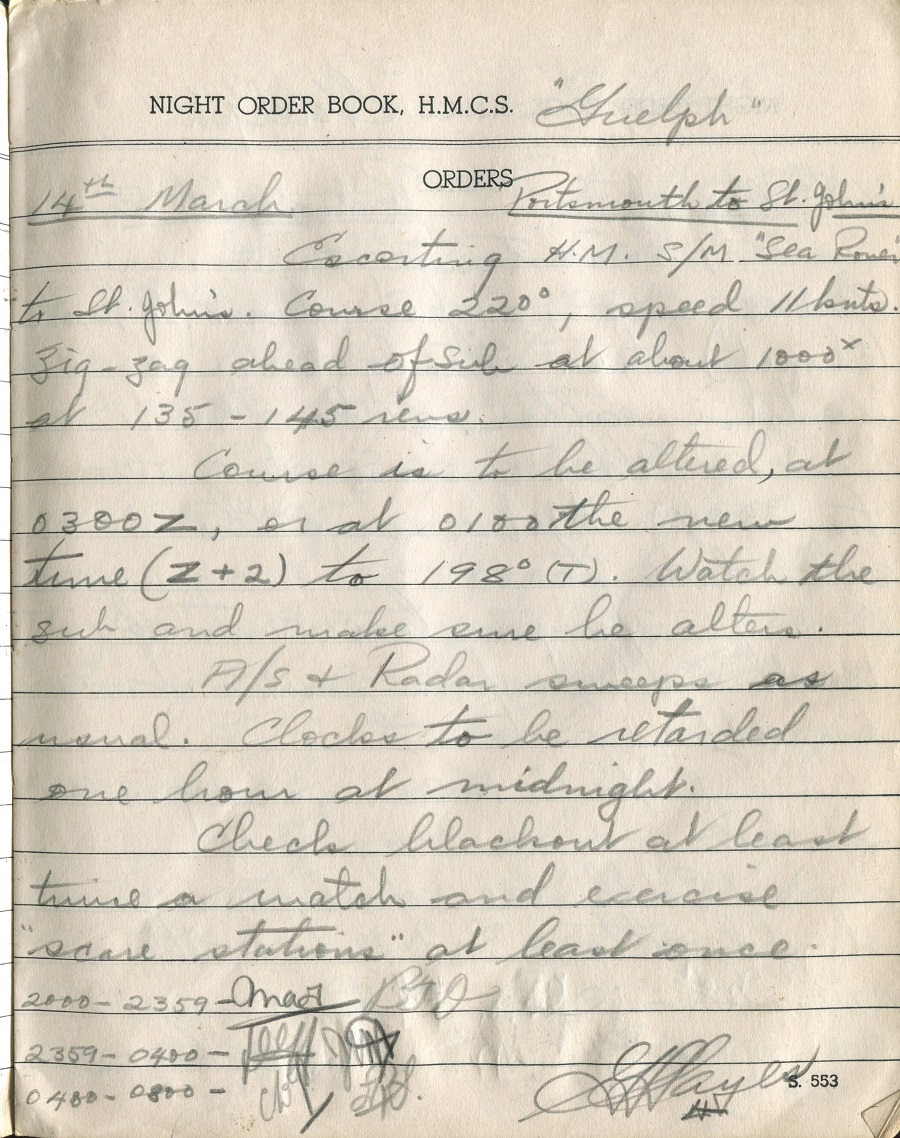 NIGHT ORDER BOOK, H.M.C.S. "Guelph"
ORDERS
14th March Portsmouth to St. John's
Escorting H.M. S/M "Sea Rover"
to St. John's. Course 220°, speed 11 knts.
Zig-zag ahead of Sub at about 1000x
at 135-145 revs.
Course is to be altered, at
0300Z, or at 0100 the new
time (Z+2) to 198° (T). Watch the
sub and make sure he alters.
A/S + Radar sweeps as
usual. Clocks to be retarded
one hour at midnight.
Check blackout at least
twice a watch and exercise
"scare stations" at least once.
2000-2359-
2359-0400-
0400-0800-
GHHayes
S. 553